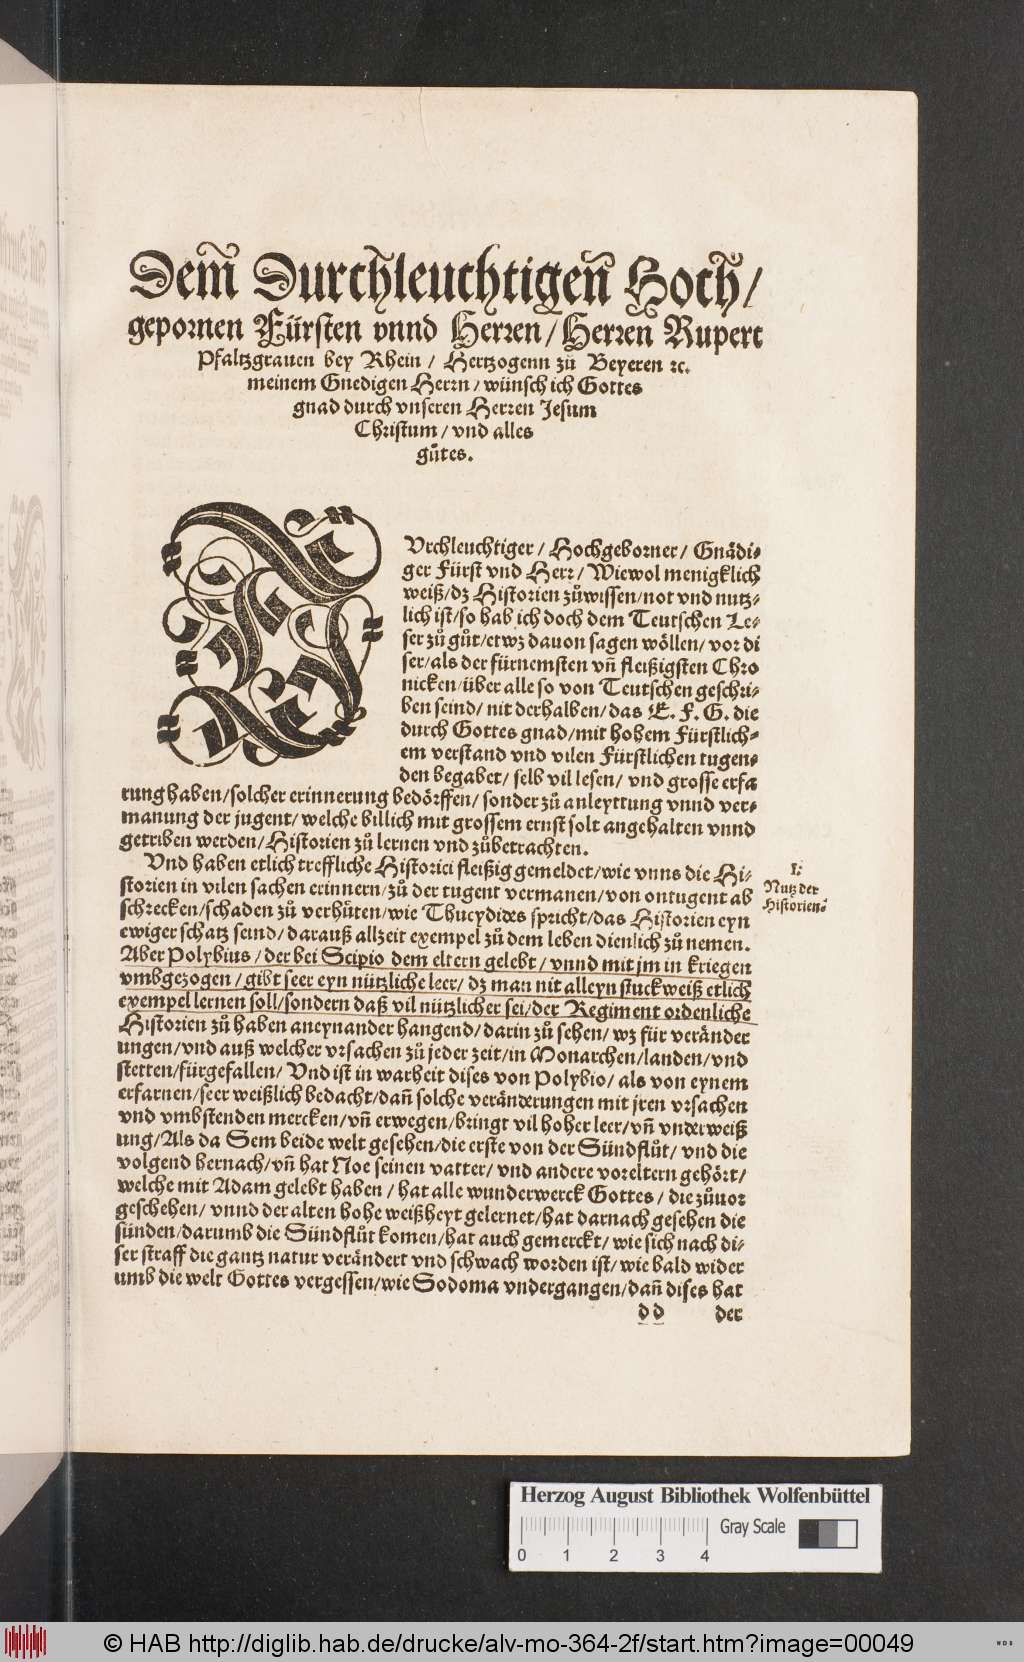 Dem̃ Durch̃leuchtigeñ Hoch̃/
gepornen Fürsten vnnd Herren/ Herreñ Rupert
Pfaltzgrauen bey Rhein / Hertzogenn zů Beyeren ꝛc.
meinem Gnedigen Herrn / wünsch ich Gottes
gnad durch vnseren Herren Jesum
Christum / vnd alles
gůtes.
DVrchleuchtiger / Hochgeborner / Gnädi-
ger Fürst vnd Herr / Wiewol menigklich
weiß/dz Historien zůwissen/not vnd nutz-
lich ist/so hab ich doch dem Teutschen Le-
ser zů gůt/etwz dauon sagen wöllen/ vor di
ser/als der fürnemsten vñ fleißigsten Chro
nicken/über alle so von Teutschen geschri-
ben seind/ nit derhalben/das E. F. G. die
durch Gottes gnad/mit hohem Fürstlich-
em verstand vnd vilen Fürstlichen tugen-
den begabet/ selb vil lesen/ vnd grosse erfa
rung haben/solcher erinnerung bedörffen/ sonder zů anleyttung vnnd ver-
manung der jugent/ welche billich mit grossem ernst solt angehalten vnnd
getriben werden/Historien zů lernen vnd zůbetrachten.
Vnd haben etlich treffliche Historici fleißig gemeldet/wie vnns die Hi-
storien in vilen sachen erinnern/zů der tugent vermanen/von ontugent ab
schrecken/schaden zů verhůten/wie Thucydides spricht/das Historien eyn
ewiger schatz seind/darauß allzeit exempel zů dem leben dienlich zů nemen.
Aber Polybius / der bei Scipio dem eltern gelebt/ vnnd mit jm in kriegen
vmbgezogen/ gibt seer eyn nützliche leer/ dz man nit alleyn stuckweiß etlich
exempel lernen soll/sondern daß vil nützlicher sei/der Regiment ordenliche
Historien zů haben aneynander hangend/darin zů sehen/ wz für veränder
ungen/vnd auß welcher vrsachen zů jeder zeit/in Monarchen/landen/vnd
stetten/fürgefallen/ Vnd ist in warheit dises von Polybio/ als von eynem
erfarnen/seer weißlich bedacht/dañ solche veränderungen mit jren vrsachen
vnd vmbstenden mercken/vñ erwegen/bringt vil hoher leer/vñ vnderweiß
ung/Als da Sem beide welt gesehen/die erste von der Sündflůt/ vnd die
volgend hernach/vñ hat Noe seinen vatter/ vnd andere voreltern gehört/
welche mit Adam gelebt haben / hat alle wunderwerck Gottes / die zůuor
geschehen/ vnnd der alten hohe weißheyt gelernet/hat darnach gesehen die
sünden/darumb die Sündflůt komen/hat auch gemerckt/ wie sich nach di-
ser straff die gantz natur verändert vnd schwach worden ist/ wie bald wider
umb die welt Gottes vergessen/wie Sodoma vndergangen/dañ dises hat
d d der
I.
Nutz der
Historien.
Herzog August Bibliothek Wolfenbüttel
Gray Scale
0 1 2 3 4
© HAB http://diglib.hab.de/drucke/alv-mo-364-2f/start.htm?image=00049